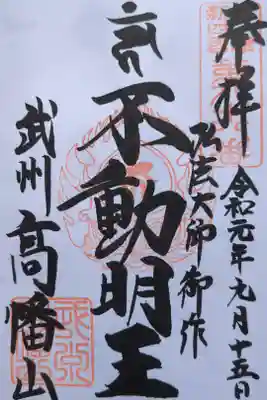 奉拝
令和元年九月十五日
弘法大師御作
不動明王
武州高幡山